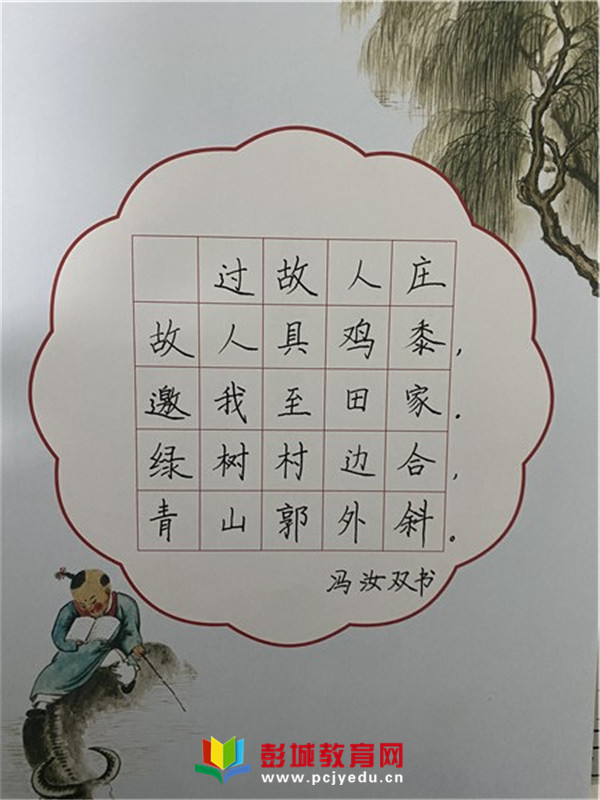 过故人庄
故人具鸡黍，
邀我至田家.
绿树村边合，
青山郭外斜。
冯汝双书
彭城教育网
www.pcjyedu.cn